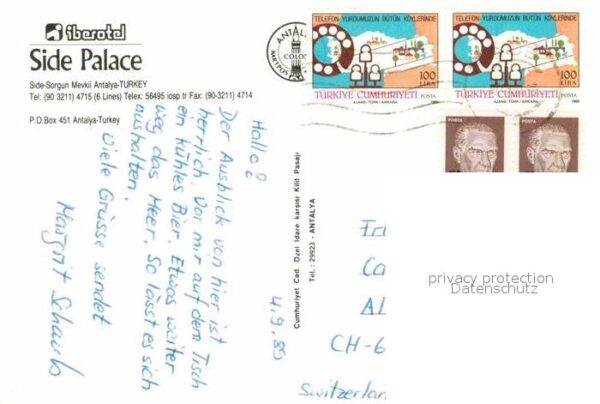 iberotel
Side Palace
Side-Sorgun Mevkii Antalya-TURKEY
Tel: (90 3211) 4715 (6 Lines) Telex: 56495 iosp tr Fax: (90-3211) 4714
P.O.Box 451 Antalya-Turkey
Hallo!
Der Ausblick von hier ist
herrlich. Vor mir auf dem Tisch
ein kühles Bier. Etwas weiter
weg das Meer. So lässt es sich
aushalten.
Viele Grüsse sendet
Margrit Schaub
4.9.89
Cumhuriyet Cad. Özel İdare karşısı Kilit Pasajı
Tel.: 29923 - ANTALYA
ANTALYA
TELEFON-YURDUMUZUN BÜTÜN KÖYLERİNDE
100
LİRA
TÜRKİYE CUMHURİYETİ POSTA
AJANS-TÜRK/ANKARA
TELEFON-YURDUMUZUN BÜTÜN KÖYLERİNDE
100
LİRA
TÜRKİYE CUMHURİYETİ POSTA
AJANS-TÜRK/ANKARA
POSTA
POSTA
Fr
Ca
Al
CH-6
Switzerlan
privacy protection
Datenschutz